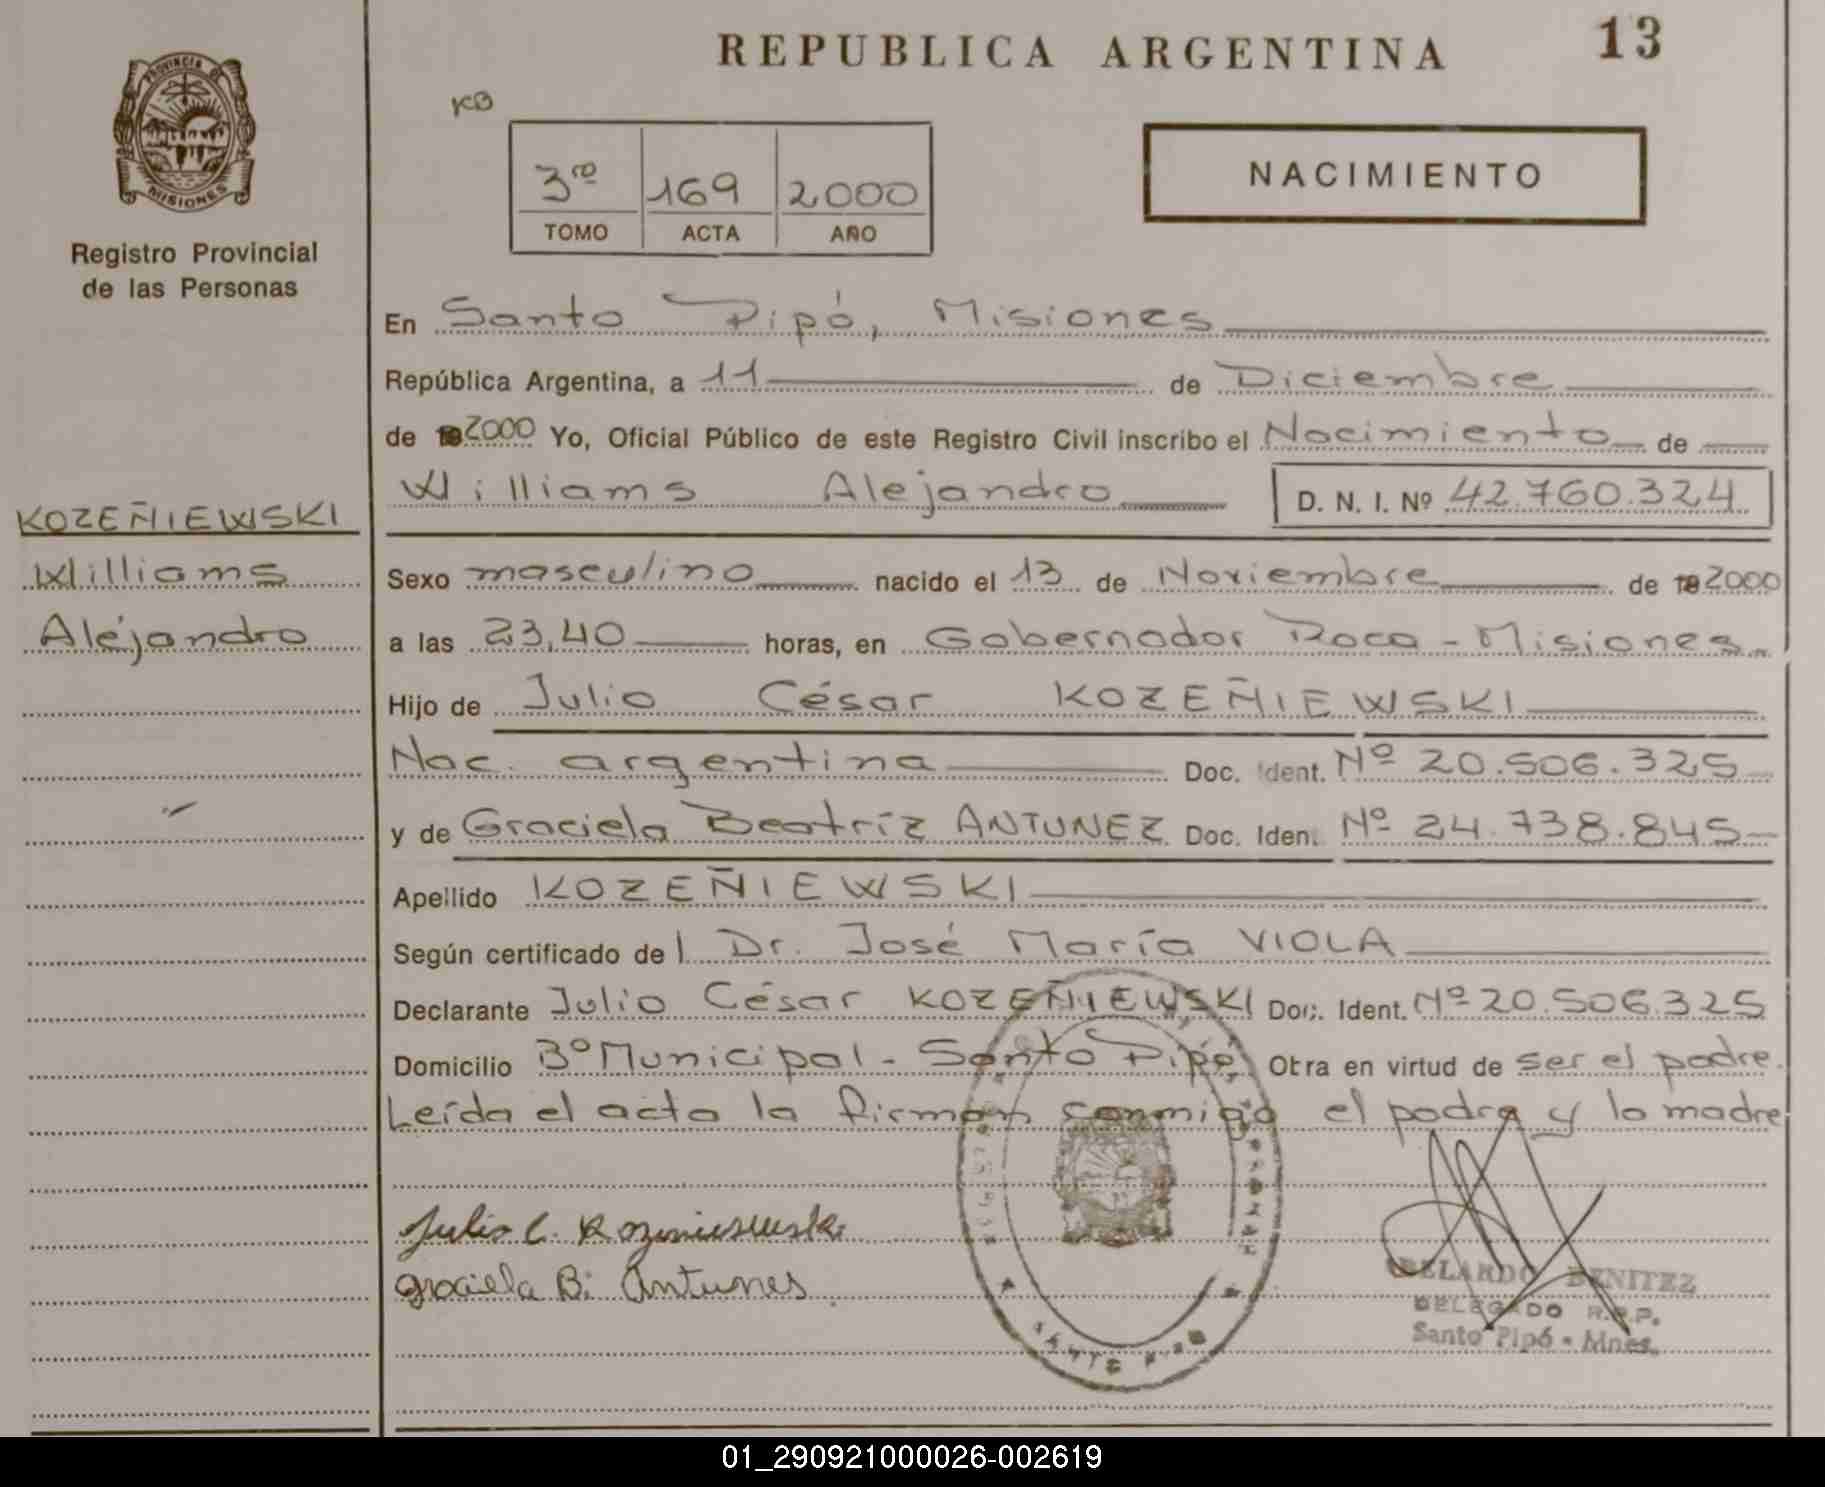 REPUBLICA ARGENTINA
13
PROVINCIA DE
MISIONES
Registro Provincial
de las Personas
KB
3ro 169 2000
TOMO ACTA AÑO
NACIMIENTO
En Santo Pipó, Misiones
República Argentina, a 11 de Diciembre
de 19 2000 Yo, Oficial Público de este Registro Civil inscribo el Nacimiento de
Williams Alejandro D. N. I. Nº 42.760.324
KOZEÑIEWSKI
Williams
Alejandro
Sexo masculino nacido el 13 de Noviembre de 19 2000
a las 23,40 horas, en Gobernador Roca - Misiones
Hijo de Julio César KOZEÑIEWSKI
Nac. argentina Doc. Ident. Nº 20.506.325
y de Graciela Beatríz ANTUNEZ Doc. Iden. Nº 24.738.845
Apellido KOZEÑIEWSKI
Según certificado de l Dr. José María VIOLA
Declarante Julio César KOZEÑIEWSKI Doc. Ident. Nº 20.506.325
Domicilio Bº Municipal - Santo Pipó Obra en virtud de ser el padre.
Leída el acta la firman conmigo el padre y la madre
Julio C.
Graciela B. Antunes
ABELARDO BENITEZ
DELEGADO R.P.P.
Santo Pipó - Mnes.
01_290921000026-002619